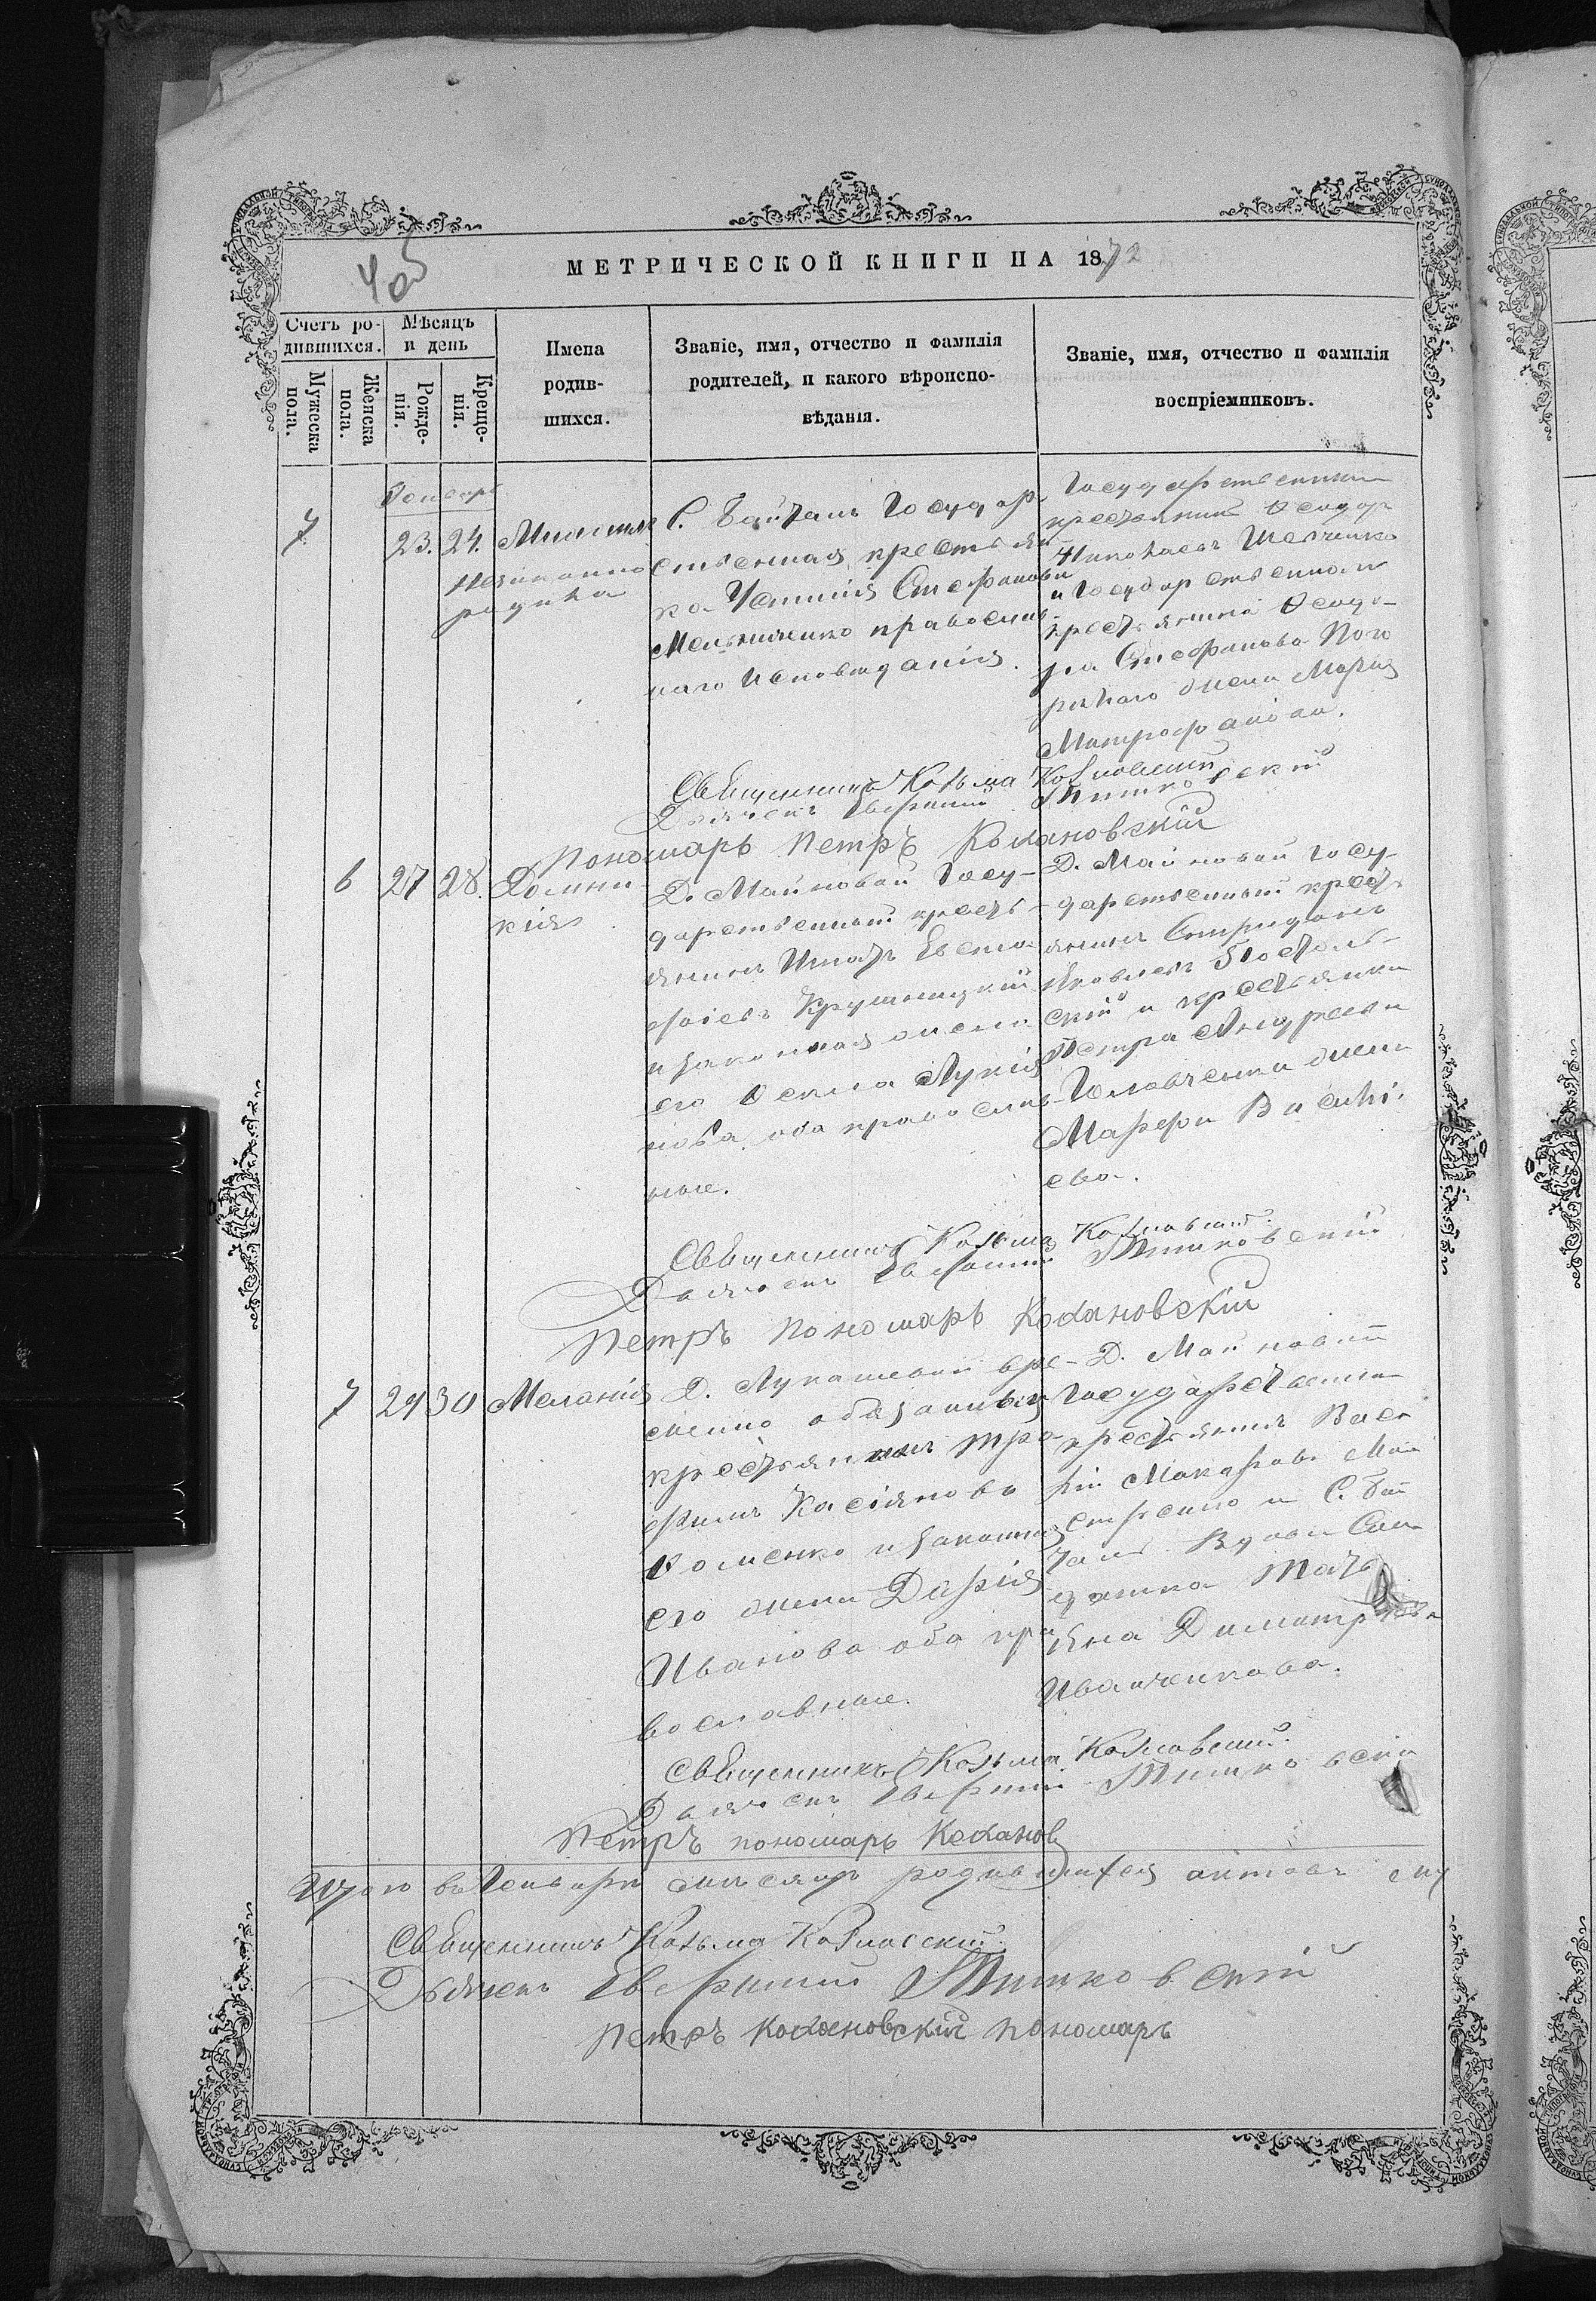 МЕТРИЧЕСКОЙ КНИГИ НА 1872
Счетъ ро-
дившихся.
Мѣсяцъ
и день
Мужеска
пола.
Женска
пола.
Рожде-
нія.
Креще-
нія.
Имена
родив-
шихся.
Званіе, имя, отчество и фамилія
родителей, и какого вѣроиспо-
вѣданія.
Званіе, имя, отчество и фамилія
воспріемниковъ.
7
23. 24.
С. Государ-
ственная крестьян
ка Устинія Стефанова
Мельниченко православ-
наго исповеданія.
крестьянинъ Ѳеодор
Николаевъ Шевченко
и Государственнаго
крестьянина Ѳеодо-
ра Стефанова
жена Марія
Митрофанова.
Священникъ Козьма Козловский
Дьячекъ Тишковский
Пономарь Петръ Кохановский
6 27 28. Домни-
кія
Д. Майновой Госу-
дарственный кресть-
янинъ Игнатъ Евста-
фіевъ Крушницкий
и законная жена
его Ѳекла Лукія-
нова оба православ-
ные.
Д. Майновой Госу-
дарственный кресть
янинъ Спиридонъ
Яковлевъ Постоль-
ский и крестьянина
Петра Андреева
Головченка жена
Марфа Василі-
ева.
Священникъ Козьма Козловский.
Дьячекъ Тишковский
Петръ пономарь Кохановский
7 29 30 Меланія
Д. Лукашевой вре-
менно обязанный
крестьянинъ Тро-
фимъ Касіяновъ
Хоменко и законная
его жена Дарія
Иванова оба пра
вославные.
Д. Майновой
Государственный
крестьянинъ Васи
лій Макаровъ Май
стренко и С. Бай
талъ Вдова Сол
датка Татья
яна Димитрова
Иванченкова.
Священникъ Козьма Козловский.
Дьячекъ Тишковски
Петръ пономарь Коханов
Итого въ Генваре месяце родившихся актовъ
Священникъ Козьма Козловский.
Дьячекъ Тишковский
Петръ Кохановский пономарь